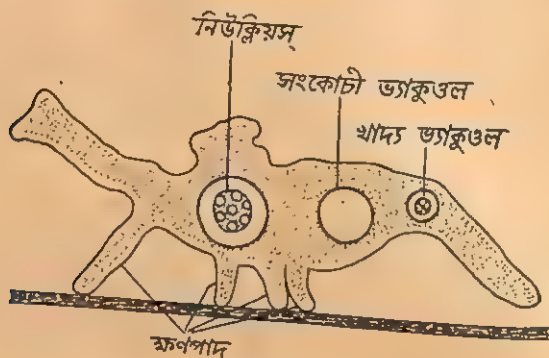 নিউক্লিয়স্
সংকোচী ভ্যাকুওল
খাদ্য ভ্যাকুওল
ক্ষণপাদ